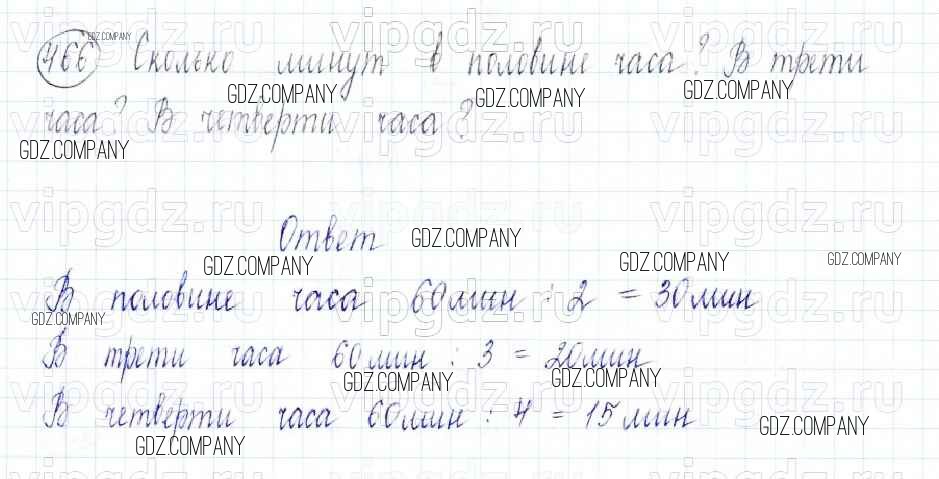 466 Сколько минут в половине часа? В трети
часа? В четверти часа?
Ответ
В половине часа 60 мин : 2 = 30 мин
В трети часа 60 мин : 3 = 20 мин
В четверти часа 60 мин : 4 = 15 мин
vipgdz.ru
GDZ.COMPANY